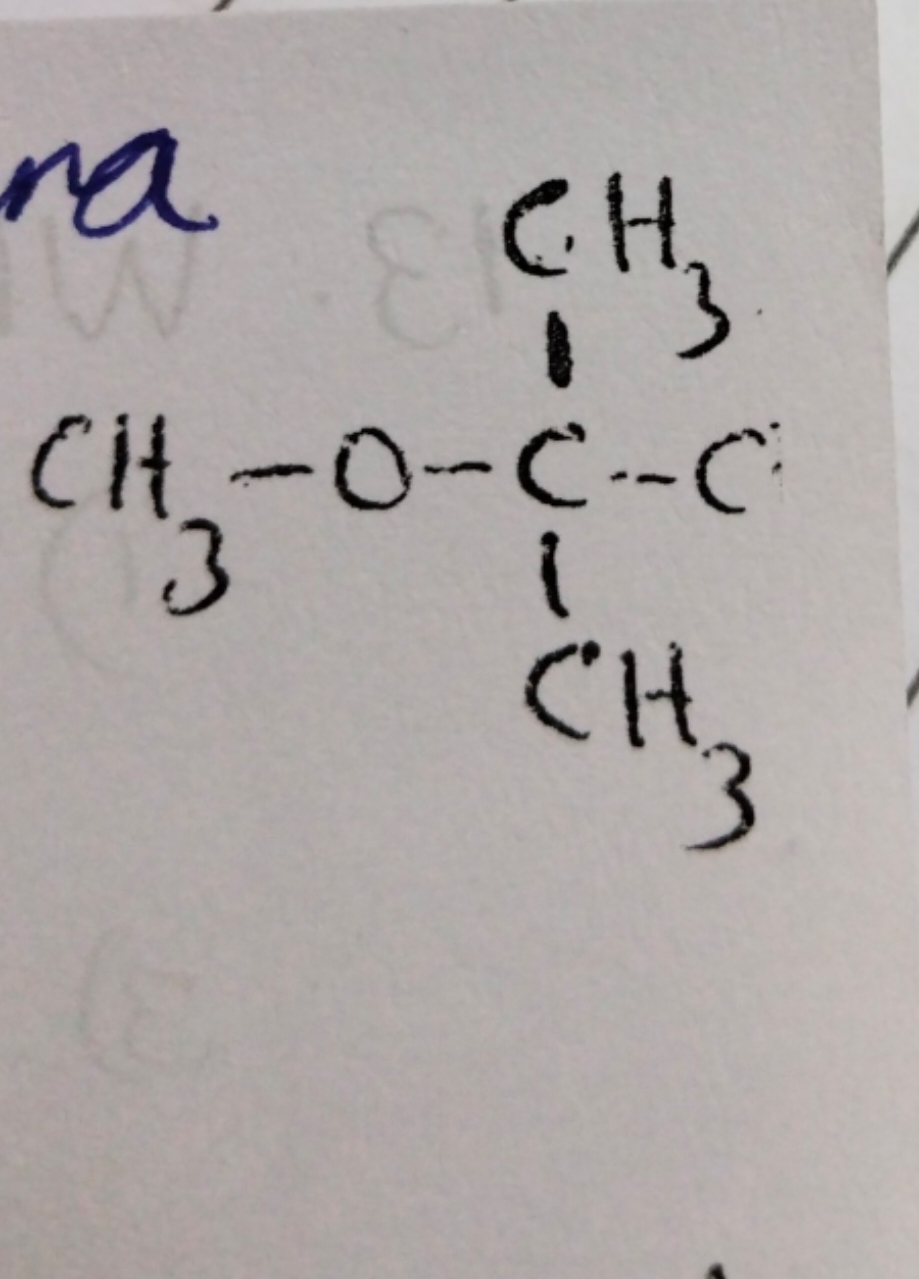 na
CH3
|
CH3-O-C--C
|
CH3